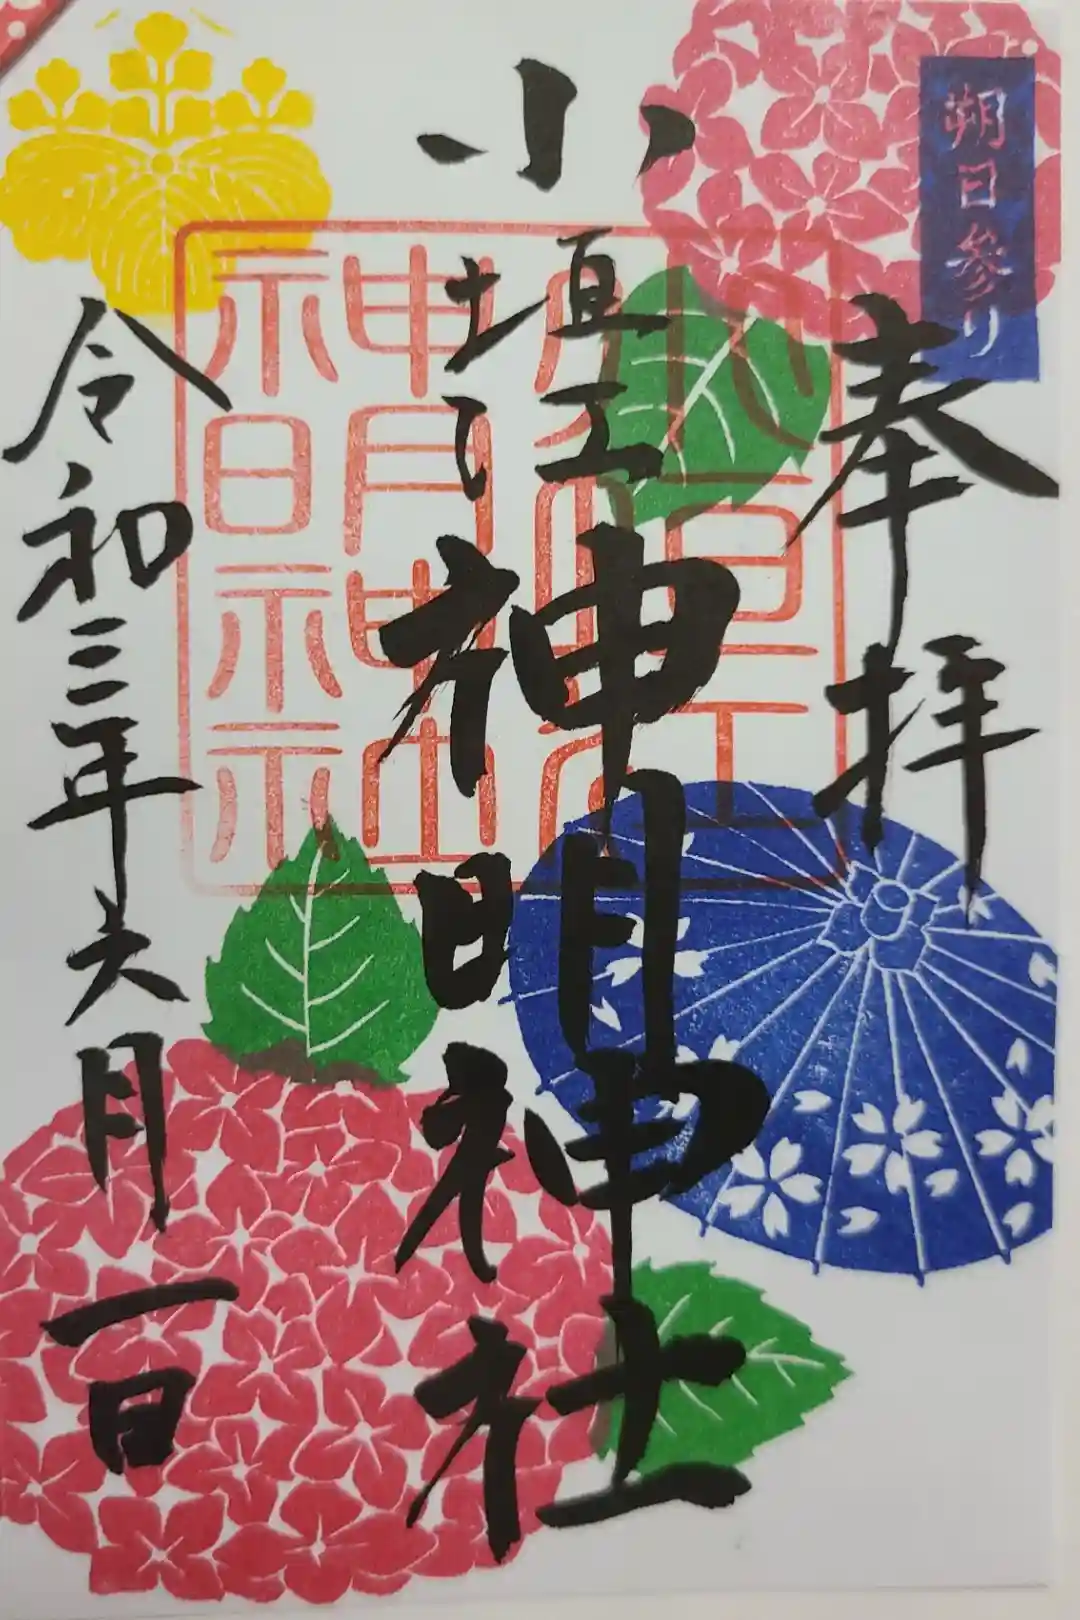 朔日參り
奉拝
小垣江神明神社
令和三年六月一日
小垣江
神明神社